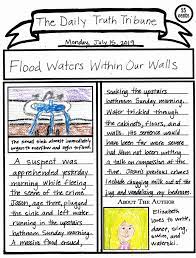 The Daily Truth Tribune
15 cents
Monday, July 15, 2019
Flood Waters Within Our Walls
The small sink almost immediately
began to overflow and
A suspect was
apprehended yesterday
morning while fleeing
the scene of the crime.
Jason, age three, plugged
the sink and left water
running in the upstairs
bathroom Sunday morning.
A massive flood ensued,
soaking the upstairs
bathroom Sunday morning.
Water trickled through
the cabinets, floors, and
walls. His sentence would
have been the more severe
had
a talk on compassion at the
time. Jason's previous crimes
include chugging milk out of the
jug and vandalizing my bedroom.
About The Author
Elizabeth
loves to write,
dance, sing,
swim, and
waterski.